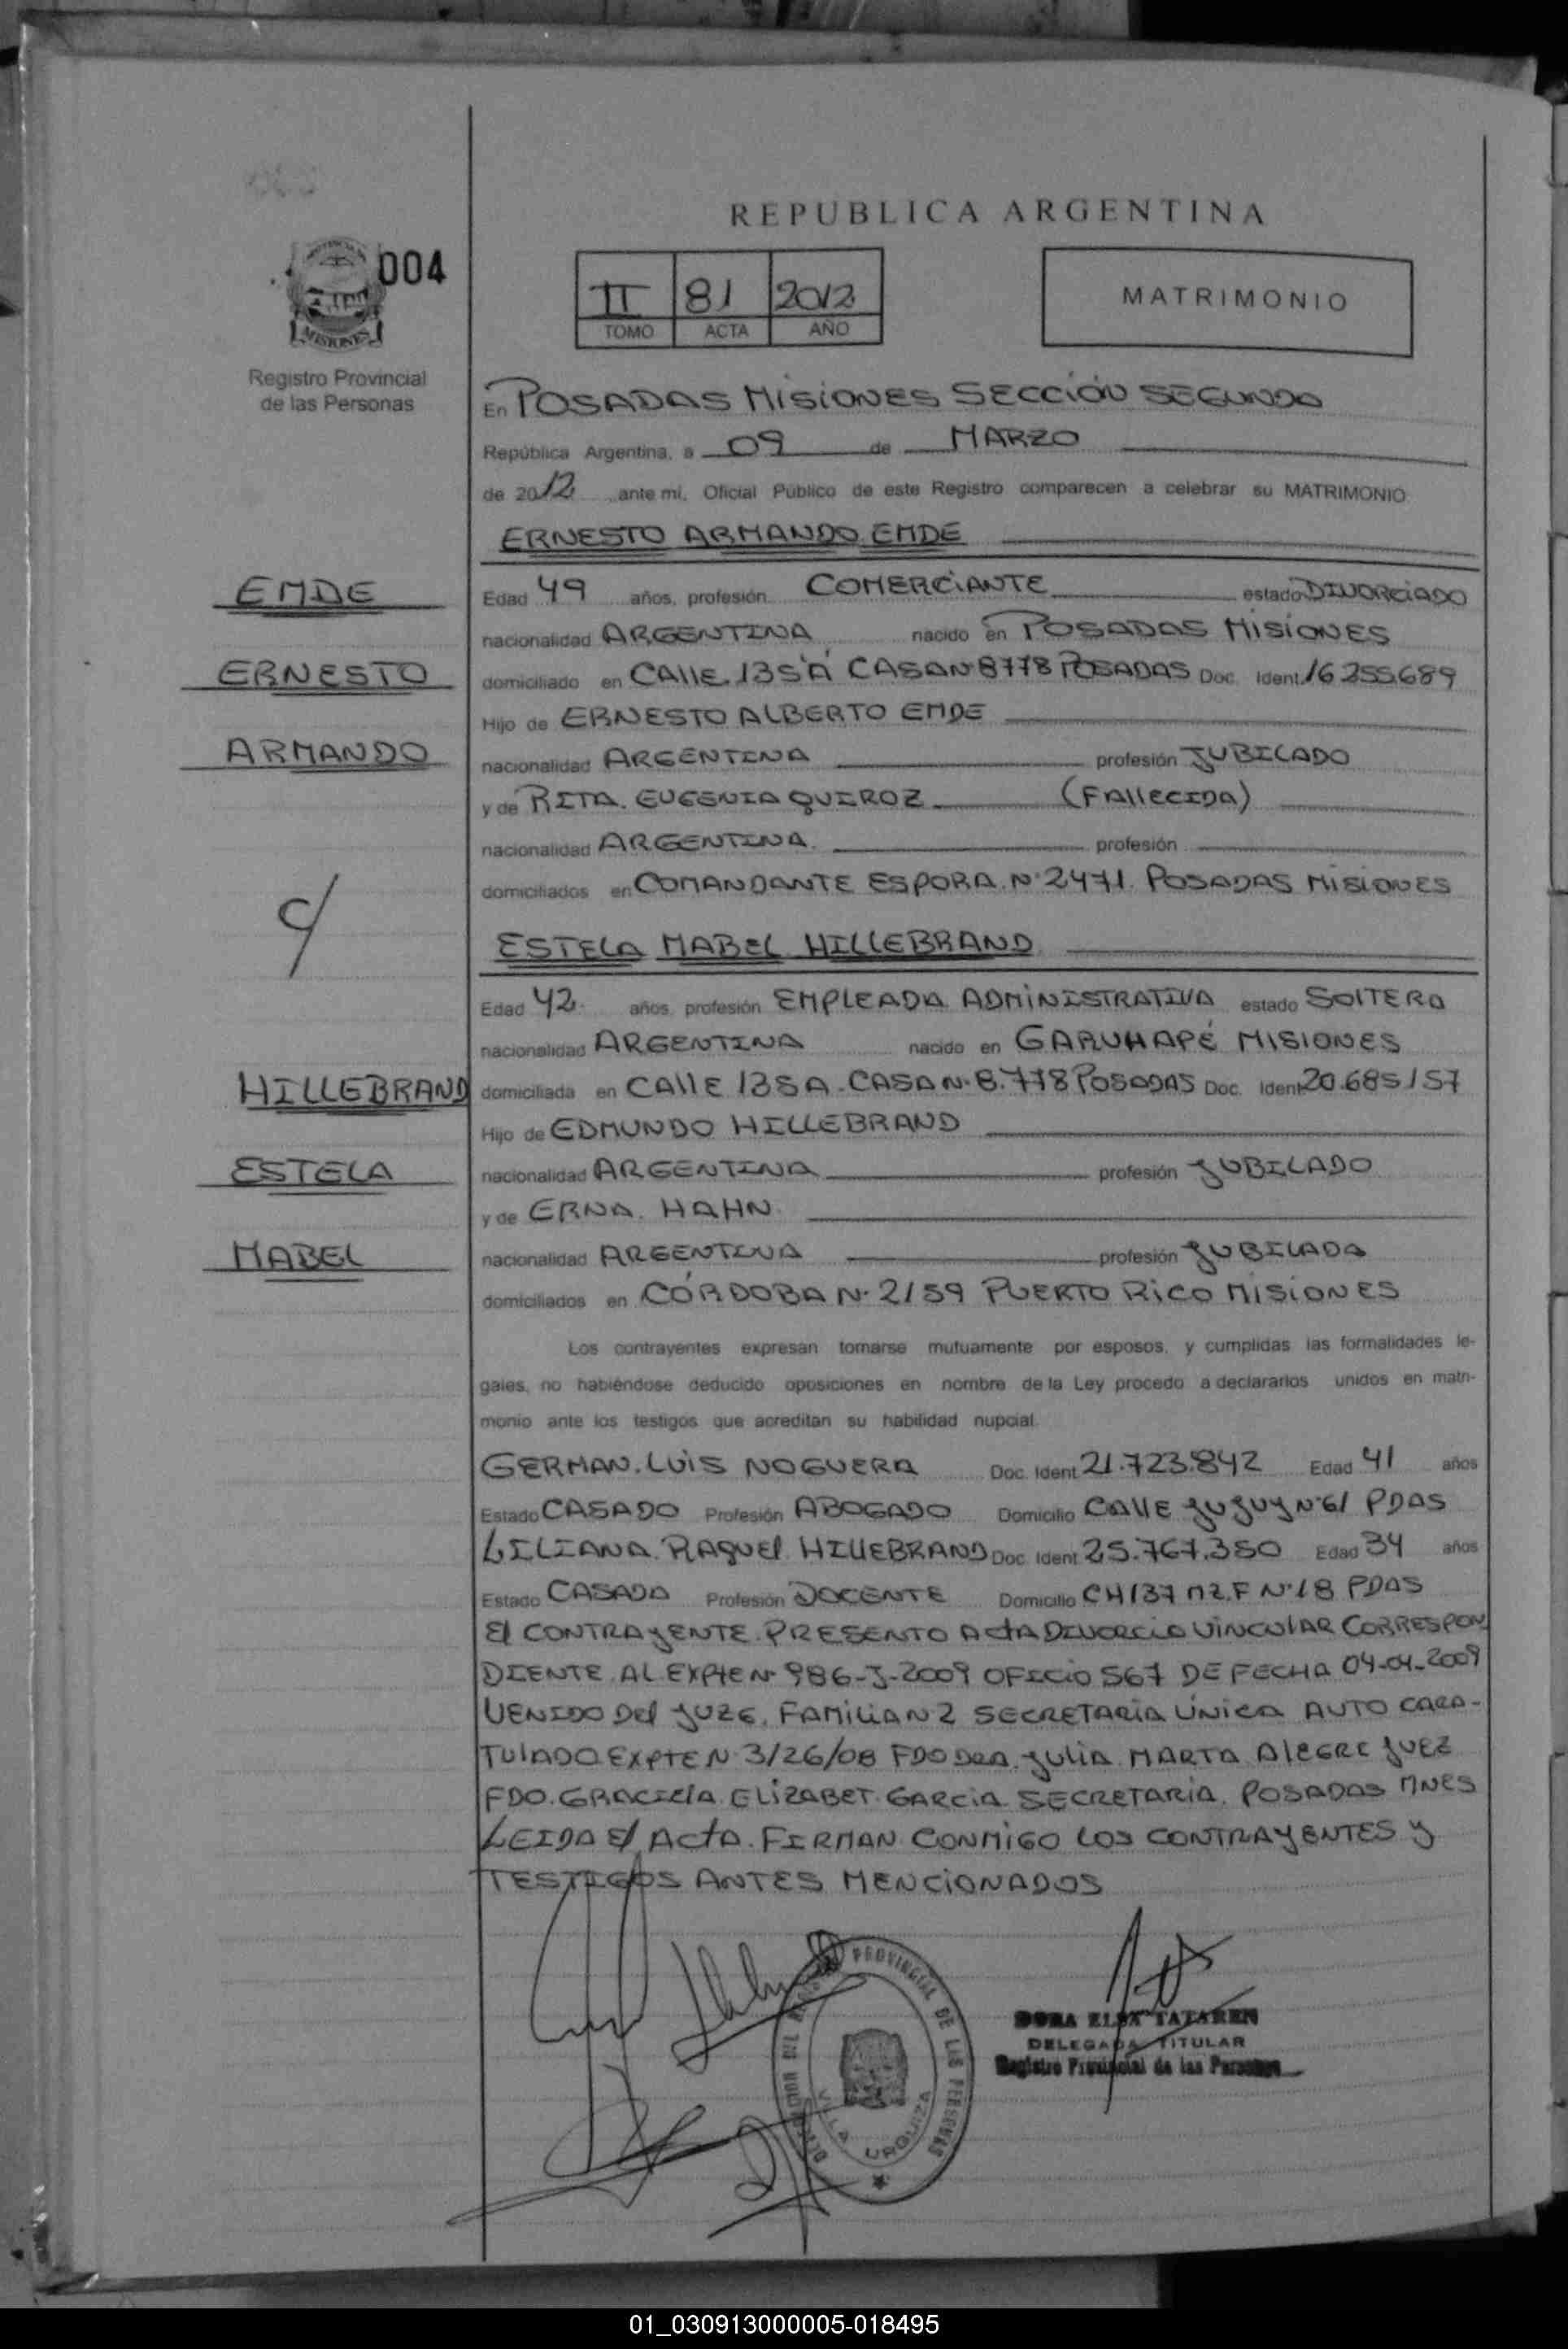 REPUBLICA ARGENTINA
004
II 81 2012
TOMO ACTA AÑO
MATRIMONIO
MISIONES
Registro Provincial
de las Personas
En POSADAS MISIONES SECCIÓN SEGUNDA
República Argentina, a 09 de MARZO
de 2012 ante mí, Oficial Público de este Registro comparecen a celebrar su MATRIMONIO
ERNESTO ARMANDO EMDE
EMDE
Edad 49 años, profesión COMERCIANTE estado DIVORCIADO
nacionalidad ARGENTINA nacido en POSADAS MISIONES
ERNESTO
domiciliado en CALLE 135 A CASA N° 8778 POSADAS Doc. Ident. 16.255.689
Hijo de ERNESTO ALBERTO EMDE
ARMANDO
nacionalidad ARGENTINA profesión JUBILADO
y de RITA EUGENIA QUIROZ (FALLECIDA)
nacionalidad ARGENTINA profesión
domiciliados en COMANDANTE ESPORA N° 2471 POSADAS MISIONES
C/
ESTELA MABEL HILLEBRAND
Edad 42 años, profesión EMPLEADA ADMINISTRATIVA estado SOLTERA
nacionalidad ARGENTINA nacido en GARUHAPÉ MISIONES
HILLEBRAND
domiciliada en CALLE 135 A CASA N° 8.778 POSADAS Doc. Ident. 20.685157
Hijo de EDMUNDO HILLEBRAND
ESTELA
nacionalidad ARGENTINA profesión JUBILADO
y de ERNA HAHN
MABEL
nacionalidad ARGENTINA profesión JUBILADA
domiciliados en CÓRDOBA N° 2159 PUERTO RICO MISIONES
Los contrayentes expresan tomarse mutuamente por esposos, y cumplidas las formalidades le-
gales, no habiéndose deducido oposiciones en nombre de la Ley procedo a declararlos unidos en matri-
monio ante los testigos que acreditan su habilidad nupcial.
GERMAN LUIS NOGUERA Doc. Ident 21.723.842 Edad 41 años
Estado CASADO Profesión ABOGADO Domicilio CALLE JUJUY N° 61 PDAS
LILIANA RAQUEL HILLEBRAND Doc. Ident 25.767.350 Edad 34 años
Estado CASADA Profesión DOCENTE Domicilio CH 137 MZ. F N° 18 PDAS
El CONTRAYENTE PRESENTO ACTA DIVORCIO VINCULAR CORRESPON
DIENTE AL EXPTE N° 986-J-2009 OFICIO 567 DE FECHA 04-04-2009
VENIDO DEL JUZG. FAMILIA N 2 SECRETARIA ÚNICA AUTO CARA-
TULADO EXPTE N° 3126/08 FDO DRA. JULIA MARTA ALEGRE JUEZ
FDO. GRACIELA ELIZABET GARCIA SECRETARIA. POSADAS MNES
LEIDA El ACTA. FIRMAN CONMIGO LOS CONTRAYENTES Y
TESTIGOS ANTES MENCIONADOS
PROVINCIAL DE LAS PERSONAS
VILLA URQUIZA
DORA ELSA TATAREN
DELEGADA TITULAR
Registro Provincial de las Personas
01_030913000005-018495